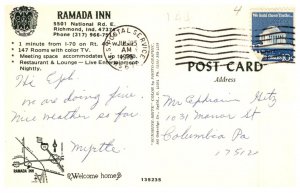 RAMADA INN
5501 National Rd. E.
Richmond, Ind. 47374
Phone (317) 966-
1 minute from I-70 on Rt. 40 W.
147 Rooms with color TV.
Meeting space accommodates
Restaurant & Lounge — Live Entertainment
Nightly.
POSTAL SERVICE
AM
POST CARD
Address
Hi Eph
we are doing fine
Nice weather so far
Myrtle
Mr Ephraim Hitz
1031 Manor St
Columbia Pa
17512
RAMADA INN
Welcome home
135235